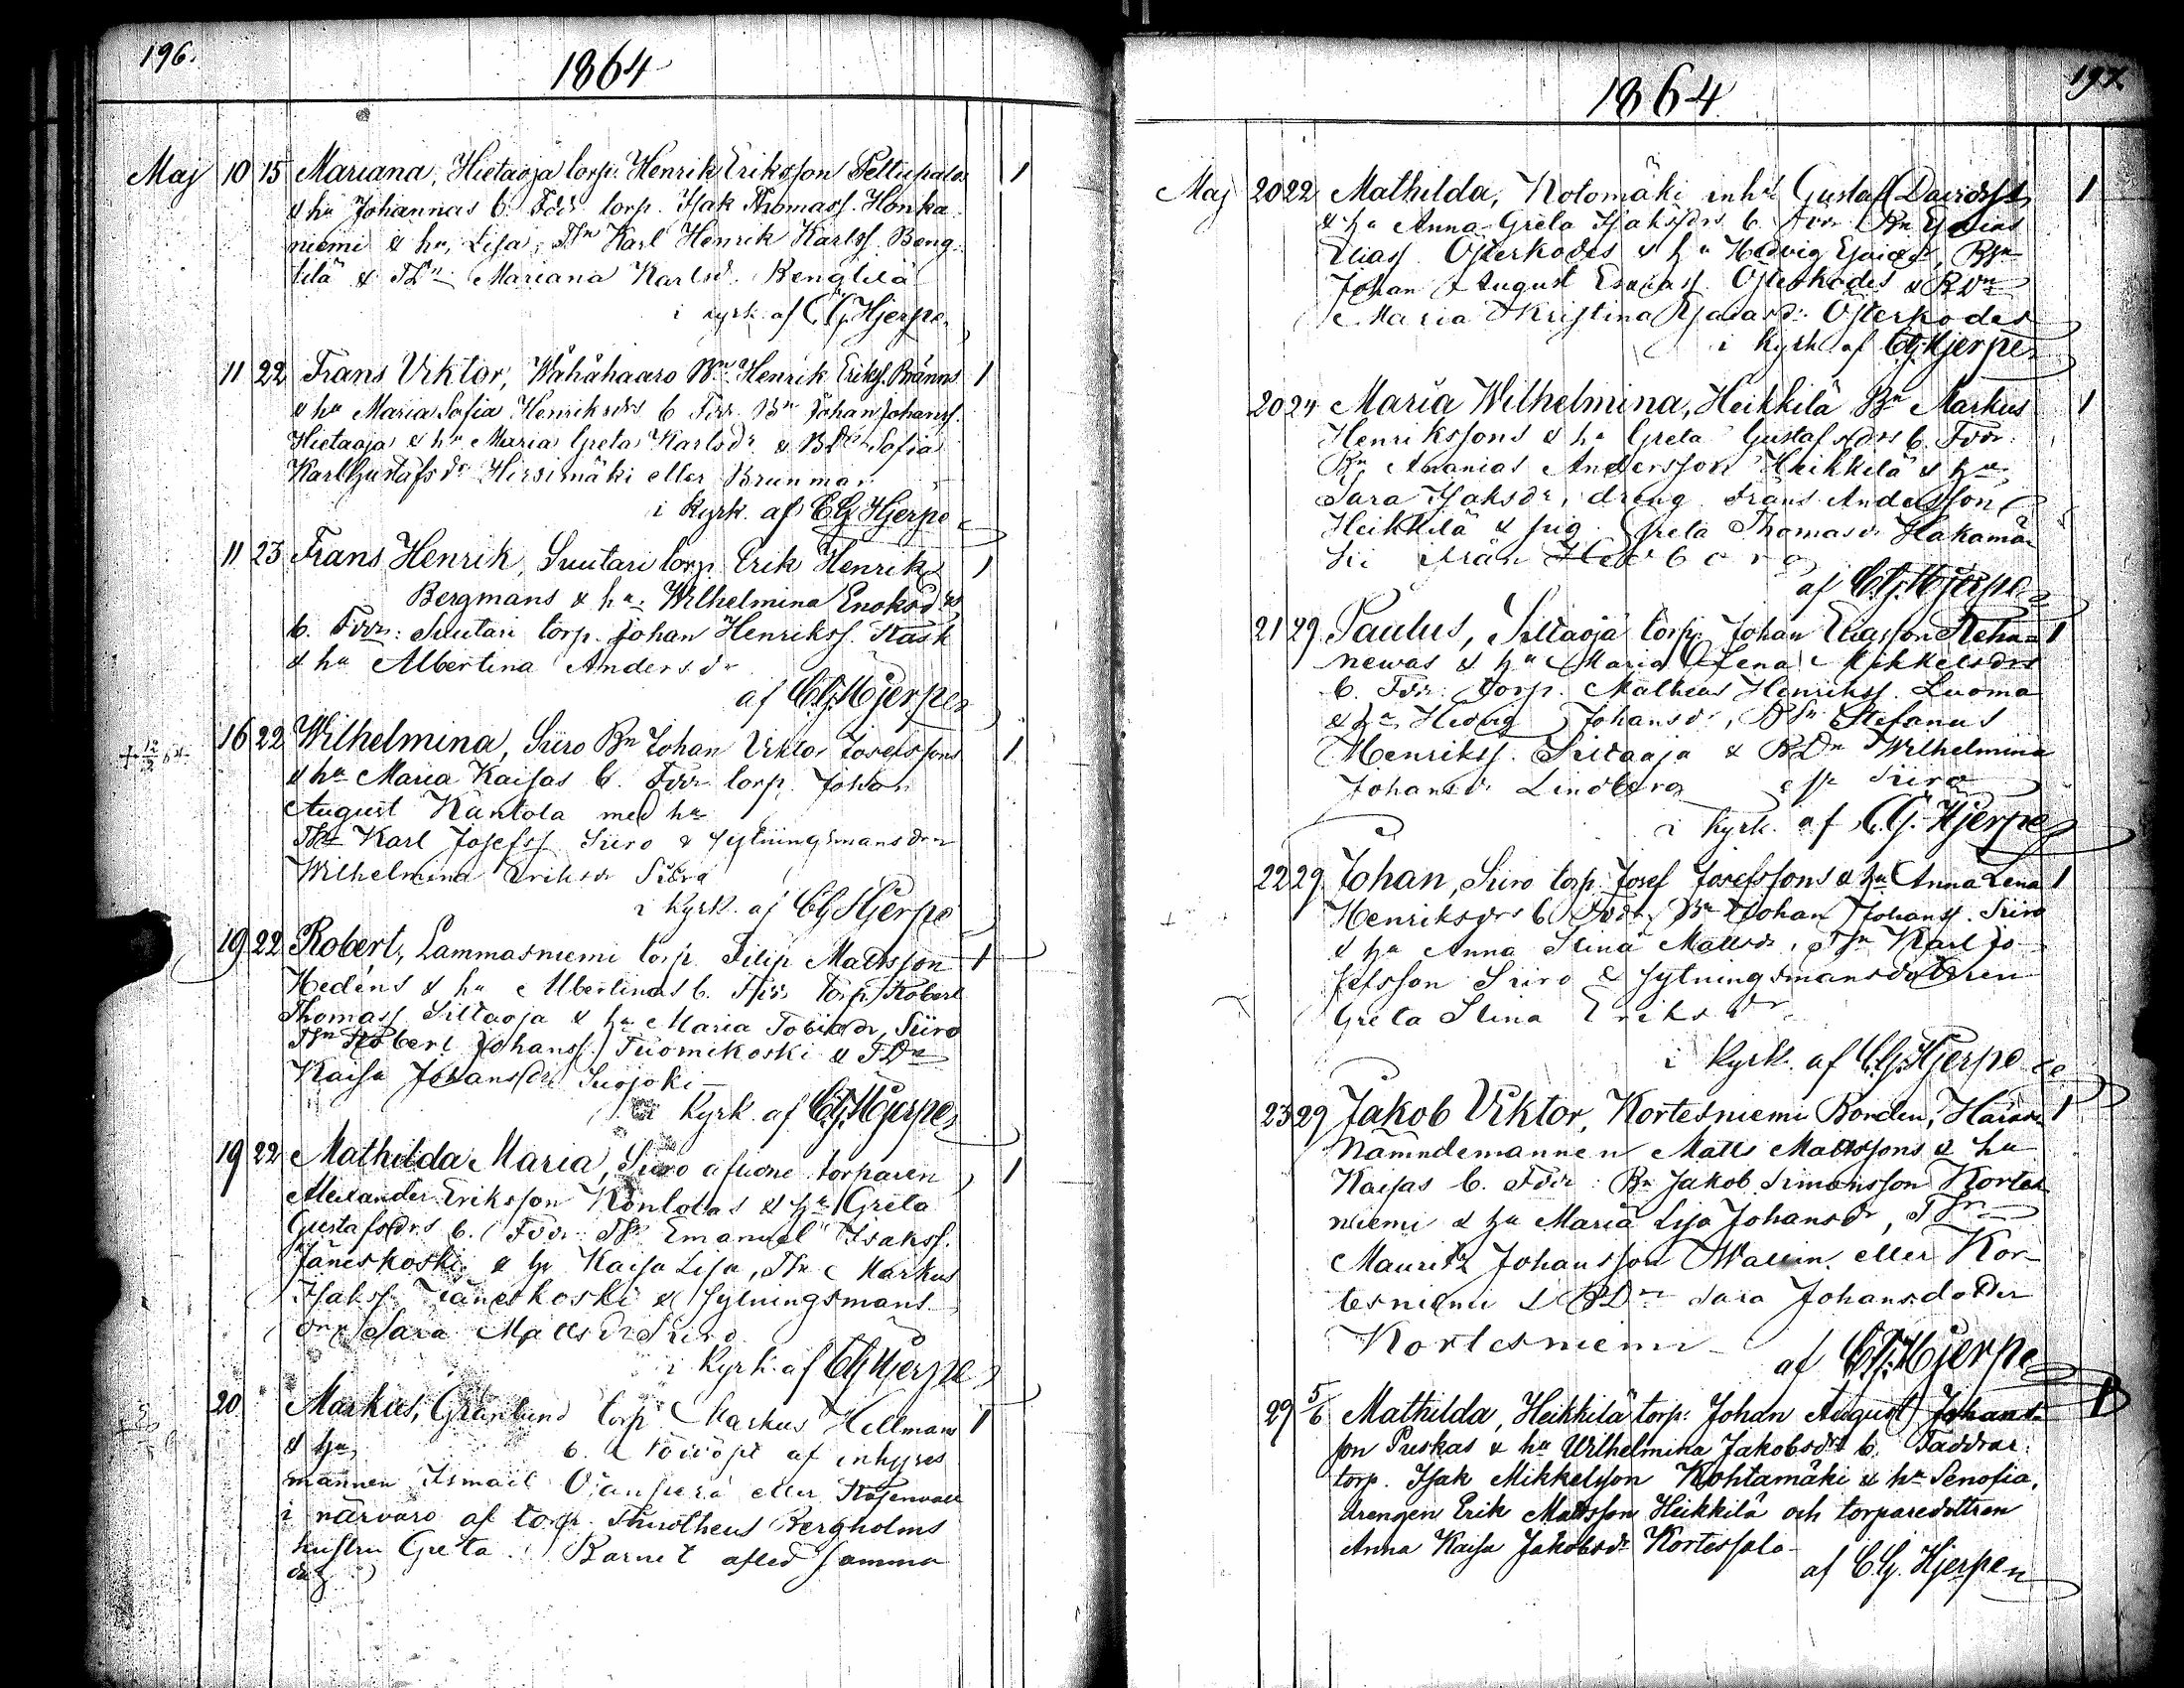 196.
1864
Maj 10 15 Mariana, Hietaoja torp. Henrik Eriksson Peltupalos 1
& hu Johannas b. Fddr torp. Isak Thomass. Honka
niemi & hu, Lisa, TSn Karl Henrik Karlss. Beng
tilä & TDn Mariana Karlsdr Bengtilä
i kyrk. af CG Hjerpe
11 22 Frans Viktor, Wähähaaro Bn Henrik Erikss. Bränns 1
& hu Maria Sofia Henriksdrs b Fddr Bn Johan Johanss.
Hietaoja & hu Maria Greta Karlsdr & BDn Sofia
Karl Gustafsdr Hirsimäki eller Brunmar
i Kyrk. af CG Hjerpe
11 23 Frans Henrik, Suutari torp. Erik Henriks 1
Bergmans & hu Wilhelmina Enoksdrs
b. Fddr: Suutari torp. Johan Henrikss. Rask
& hu Albertina Andersdr
af CG Hjerpe
+ 12/3 64 16 22 Wilhelmina, Siiro Bn Johan Viktor Josefssons 1
& hu Maria Kaisas b. Fddr torp. Johan
August Kantola med hu
TSn Karl Josefss Siiro & sytningsmansdrn
Wilhelmina Eriksdr Siiro
i Kyrk. af CG Hjerpe
19 22 Robert, Lammasniemi torp. Filip Mattsson 1
Hedéns & hu Albertinas b. Fddr torp Robert
Thomass Siltaoja & hu Maria Tobiasdr, Siiro
TSn Robert Johanss. Tuomikoski & TDn
Kaisa Johansdr Suojoki
i Kyrk. af CG Hjerpe
19 22 Mathilda Maria, Siiro afledne torparen 1
Alexander Eriksson Kontolas & hu Greta
Gustafsdrs b. Fddr TSn Emanuel Isakss.
Jäneskoski & hu Kaisa Lisa, TSn Markus
Isakss Jäneskoski & sytningsmans
drn Sara Mattsdr Siiro
i Kyrk. af CG Hjerpe
20 Markus, Granlund torp Markus Hellmans 1
& hu b. Nöddöpt af inhyses
mannen Ismail eller Rosenvall
i närvaro af torp. Timotheus Bergholms
hustru Greta. Barnet afled samma
dag
197.
1864
Maj 20 22 Mathilda, Kotomäki inhs Gustaf Davidss 1
& hu Anna Greta Isaksdrs b. Fddr Bn Esaias
Eliass Österkodes & hu Hedvig Esaiedr, BSn
Johan August Esaiass Österkodes & BDn
Maria Kristina Esaiasdr Österkodes
i Kyrk af CG Hjerpe
20 24 Maria Wilhelmina, Heikkilä Bn Markus 1
Henrikssons & hu Greta Gustafsdrs b. Fddr
Bn Ananias Andersson Heikkilä & hu
Sara Isaksdr, dreng Frans Andersson
Heikkilä & pig. Greta Thomasdr Hakamä
ki från
af CG Hjerpe
21 29 Paulus, Siltaoja torp. Johan Eliasson Reha- 1
newas & hu Maria Lena Mikkelsdrs
b. Fddr torp. Matheus Henrikss. Luoma
& hu Hedvig Johansdr, BSn Stefanus
Henrikss. Siltaoja & BDn Wilhelmina
Johansdr Lindberg Siiro
i Kyrk. af CG. Hjerpe
22 29 Johan, Siiro torp. Josef Josefssons & hu Anna Lena 1
Henriksdrs b. Fddr Bn Johan Johanss. Siiro
& hu Anna Stina Mattsdr, TSn Karl Jo-
sefsson Siiro & sytningsmansdottren
Greta Stina Eriksdr
i Kyrk. af CG. Hjerpe
23 29 Jakob Viktor, Kortesniemi Bonden, Härads 1
Nämndemannen Matts Mattssons & hu
Kaisas b. Fddr: Bn Jakob Simonsson Kortes
niemi & hu Maria Lisa Johansdr, TSn
Mauritz Johansson Wallin eller Kor-
tesniemi & BDn Sara Johansdotter
Kortesniemi
af CG. Hjerpe
29 5/6 Mathilda, Heikkilä torp: Johan August Johans- 1
son Puskas & hu Wilhelmina Jakobsdrs b. Faddrar:
torp. Isak Mikkelsson Kohtamäki & hu Senofia,
drengen Erik Mattsson Heikkilä och torparedottren
Anna Kaisa Jakobsdr Kortessalo
af CG. Hjerpe